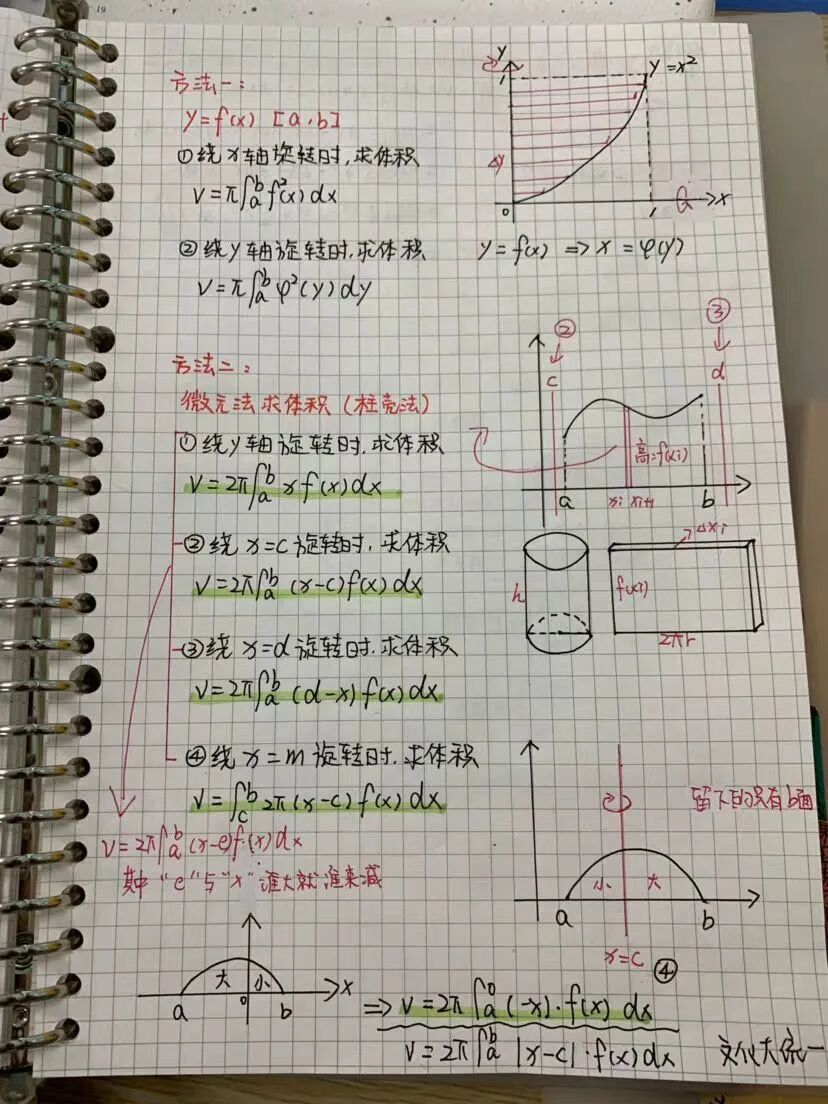 19
方法一:
y=f(x) [a,b]
①绕x轴旋转时,求体积
V=π∫ₐᵇf²(x)dx
②绕y轴旋转时,求体积
V=π∫ₐᵇφ²(y)dy
y
1
y=x²
Δy
0
1
x
y=f(x) ⇒ x=φ(y)
方法二:
微元法求体积(柱壳法)
①绕y轴旋转时,求体积
V=2π∫ₐᵇxf(x)dx
②绕x=c旋转时,求体积
V=2π∫ₐᵇ(x-c)f(x)dx
③绕x=d旋转时,求体积
V=2π∫ₐᵇ(d-x)f(x)dx
④绕x=m旋转时,求体积
V=∫_c^b 2π(x-c)f(x)dx
V=2π∫ₐᵇ(x-e)f(x)dx
其中"e"与"x"谁大就谁来减
② ③
c d
高=f(xi)
a xi xi+1 b
Δxi
h f(xi)
2πr
留下的只有b面
小 大
a b
x=c
④
大 小
a 0 b x
⇒ V=2π∫ₐ⁰(-x)·f(x)dx
V=2π∫ₐᵇ|x-c|·f(x)dx
大统一